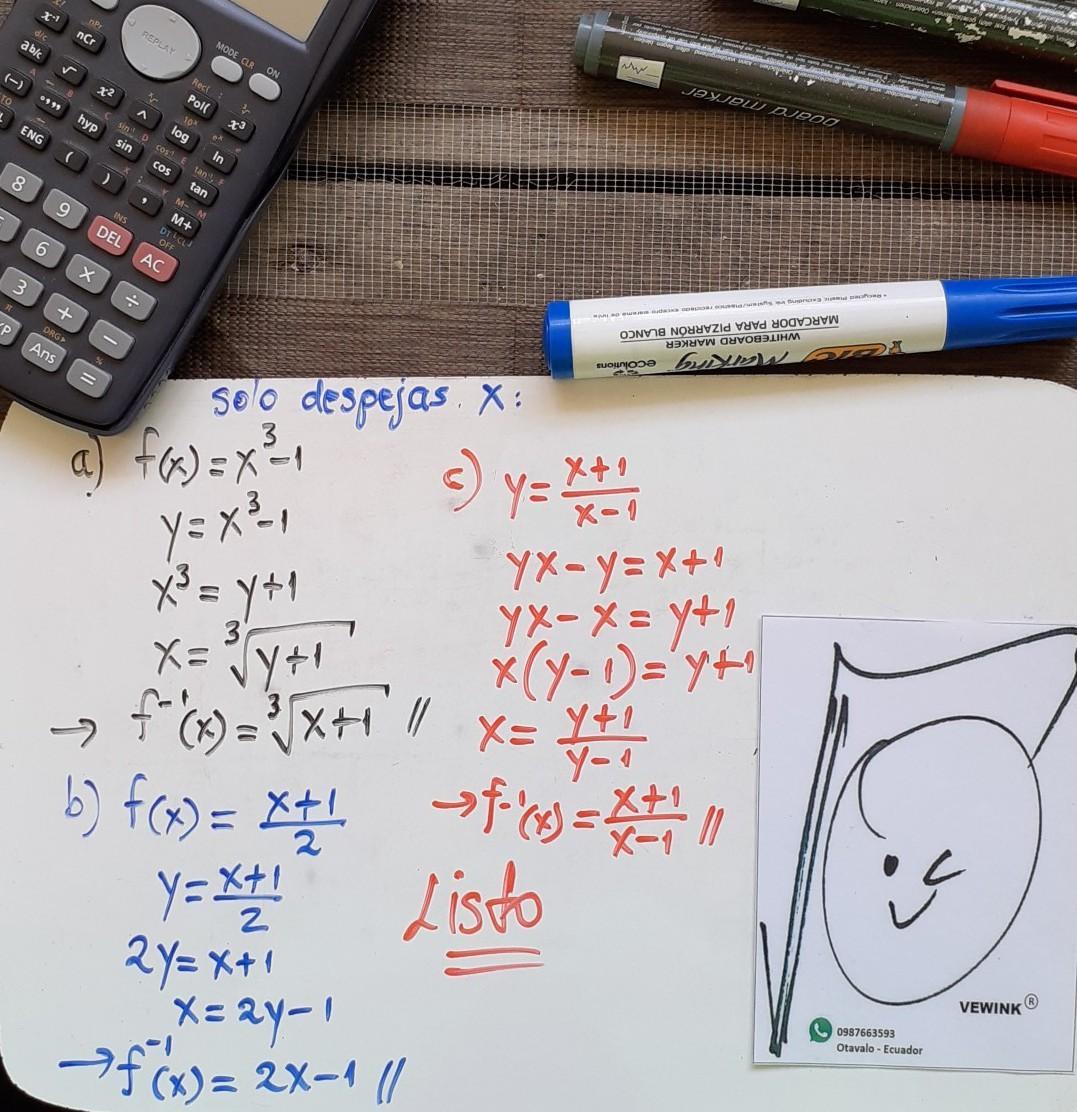 x⁻¹ nCr REPLAY MODE CLR ON
nPr
d/c
ab/c √ x² ^ Pol( x³
Rec( :
(-) °,,, hyp sin⁻¹ D 10ˣ log eˣ ln
ENG ( sin cos⁻¹ E cos tan⁻¹ F tan
) , M- M M+
8 9 INS DEL OFF AC
6 X ÷
3 + −
DRG▸ Ans % =
board marker
MARCADOR PARA PIZARRÓN BLANCO
WHITEBOARD MARKER
BIC Marking ecolutions
solo despejas. x:
a) f(x) = x³-1
y = x³-1
x³ = y+1
x = ³√(y+1)
→ f⁻¹(x) = ³√(x+1) //
b) f(x) = (x+1)/2
y = (x+1)/2
2y = x+1
x = 2y-1
→ f⁻¹(x) = 2x-1 //
c) y = (x+1)/(x-1)
yx-y = x+1
yx-x = y+1
x(y-1) = y+1
x = (y+1)/(y-1)
→ f⁻¹(x) = (x+1)/(x-1) //
Listo
VEWINK ®
0987663593
Otavalo - Ecuador